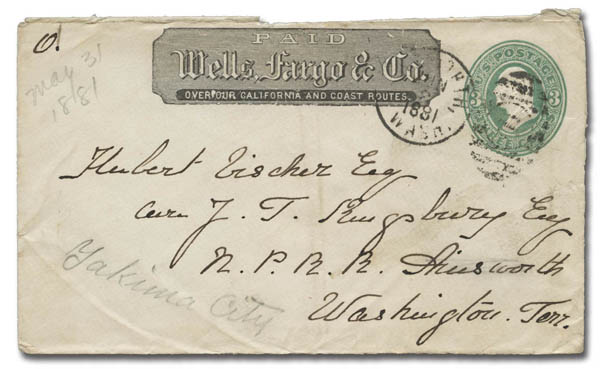 O.
May 31
1881
PAID
Wells, Fargo & Co.
OVER OUR CALIFORNIA AND COAST ROUTES.
U.S. POSTAGE
3 3
1881
Hubert Vischer Esq
care J. T. Kingsbury Esq
N. P. R. R. Ainsworth
Washington. Terr.
Yakima City